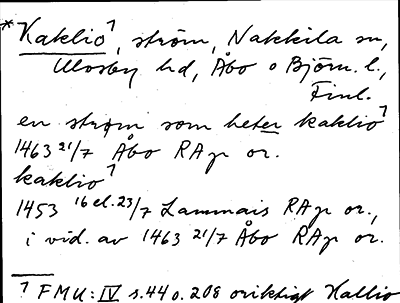 *Kaklio⁊, ström, Nakkila sn,
Ulvsby hd, Åbo o Björn. l.,
Finl.
en strøm som heter kaklio⁊
1463 21/7 Åbo RAp or.
kaklio⁊
1453 16 el. 23/7 Lammais RAp or.,
i vid. av 1463 21/7 Åbo RAp or.
⁊ FMU: IV s. 44 o. 208 oriktigt Kallio